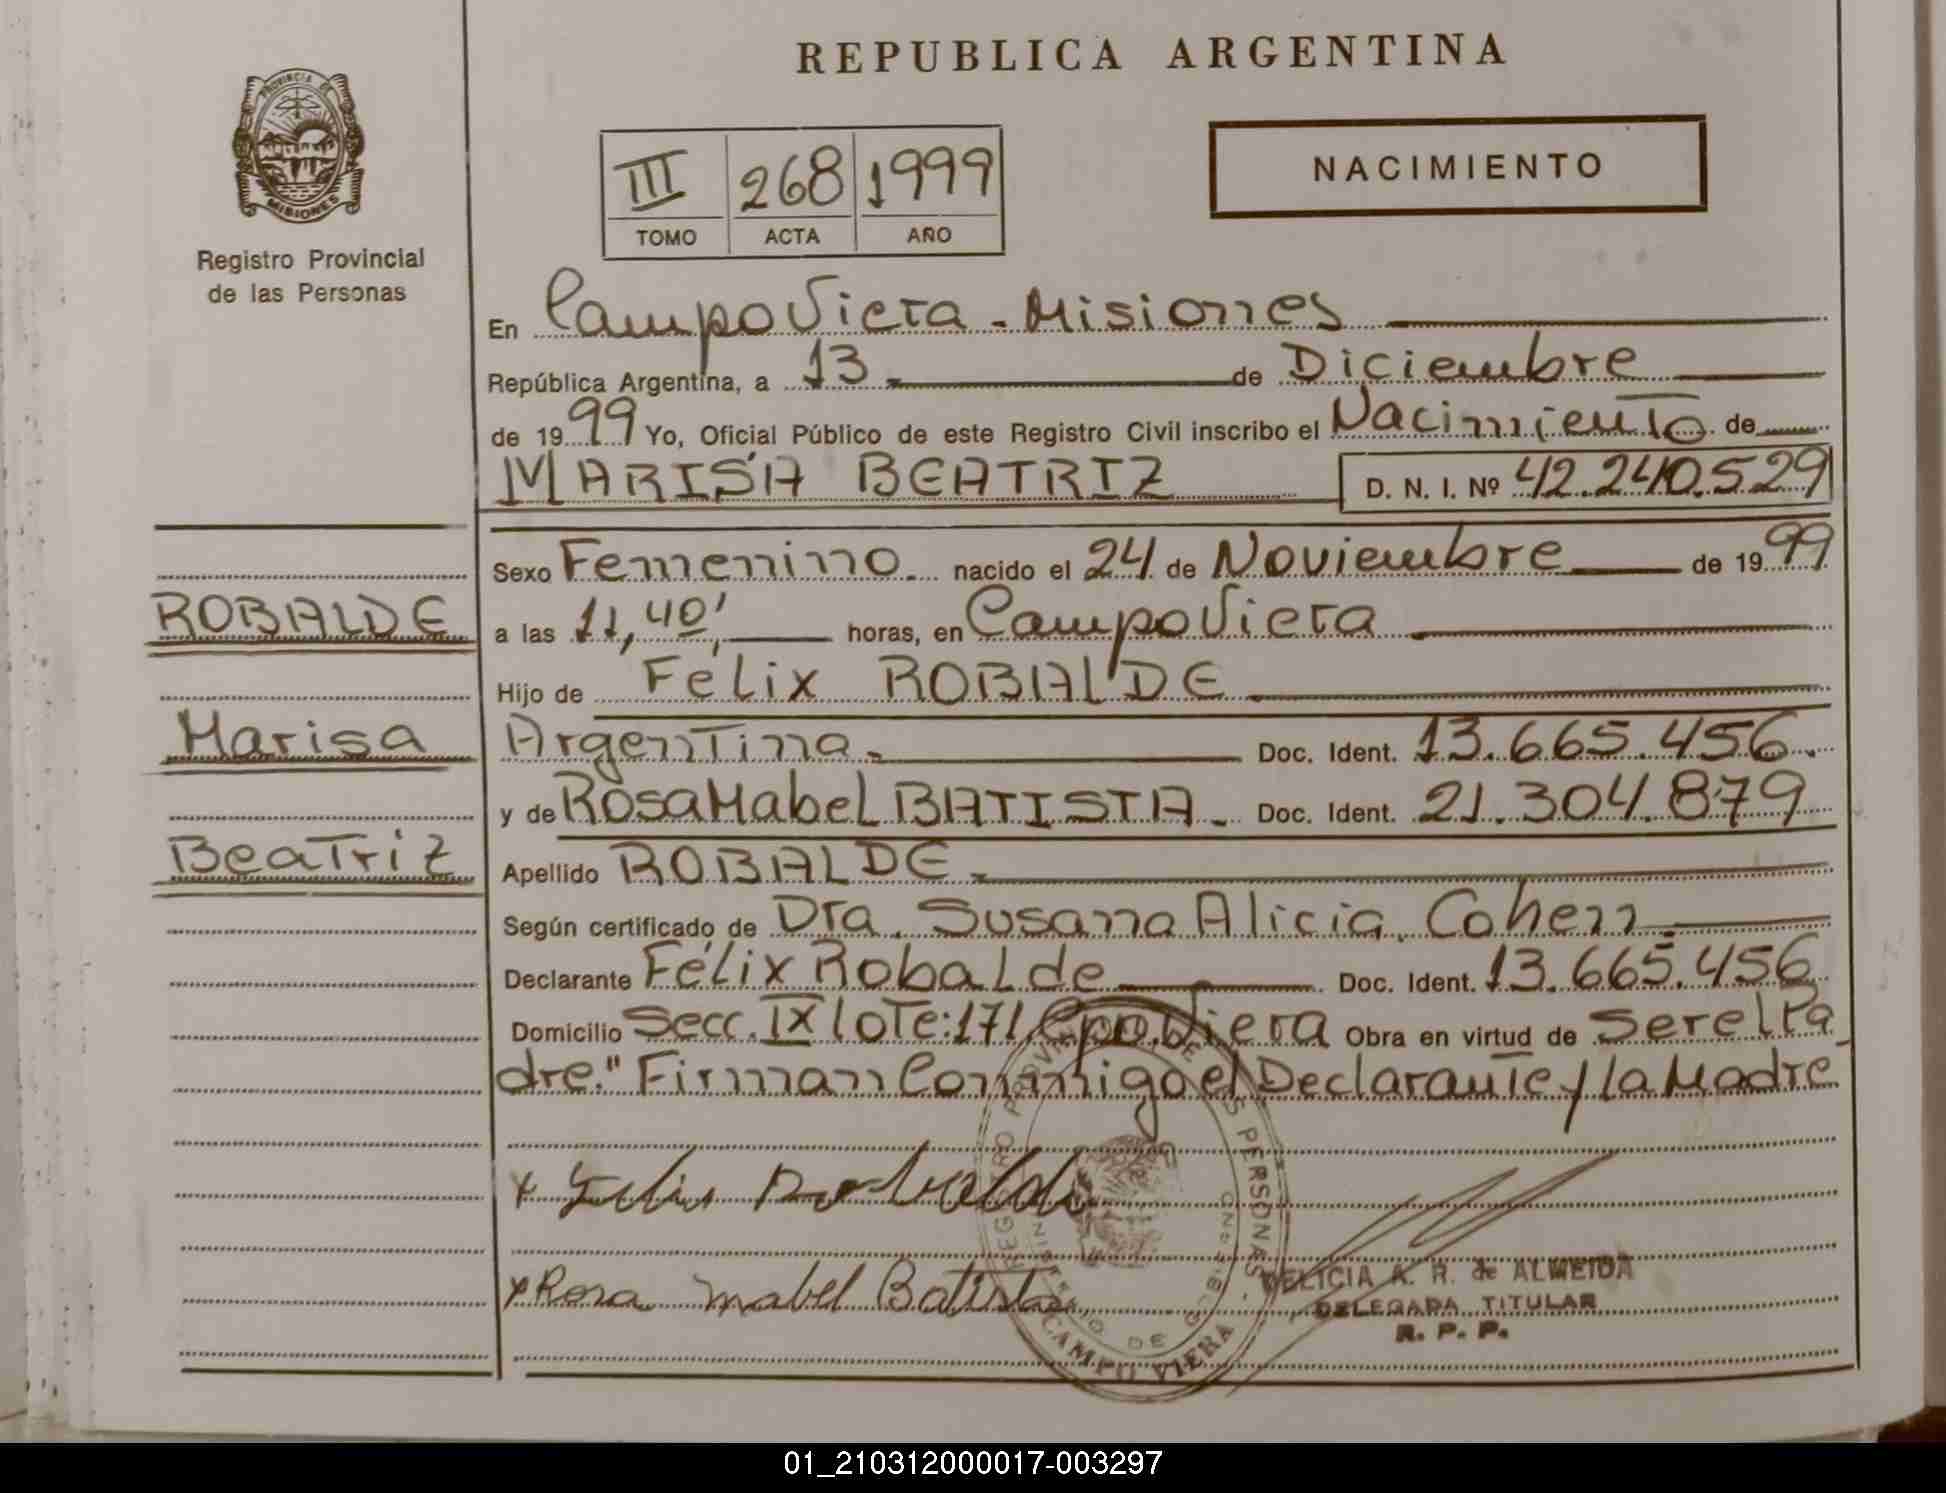 REPUBLICA ARGENTINA
PROVINCIA DE
MISIONES
Registro Provincial
de las Personas
III 268 1999
TOMO ACTA AÑO
NACIMIENTO
En Campo Viera - Misiones
República Argentina, a 13 de Diciembre
de 1999 Yo, Oficial Público de este Registro Civil inscribo el Nacimiento de
MARISA BEATRIZ D. N. I. Nº 42.240.529
Sexo Femenino. nacido el 24 de Noviembre de 1999
a las 11,40', horas, en Campo Viera
Hijo de Félix ROBALDE
Argentina. Doc. Ident. 13.665.456.
y de Rosa Mabel BATISTA. Doc. Ident. 21.304.879
Apellido ROBALDE.
Según certificado de Dra. Susana Alicia Cohen.
Declarante Félix Robalde Doc. Ident. 13.665.456
Domicilio Secc. IX lote: 171, Cpo. Viera Obra en virtud de Ser el Pa
dre." Firman Conmigo el Declarante y la Madre
ROBALDE
Marisa
Beatriz
x Felix Robalde
x Rosa Mabel Batista
REGISTRO PROVINCIAL DE LAS PERSONAS -
MINISTERIO DE GOBIERNO
CAMPO VIERA
DELICIA A. R. de ALMEIDA
DELEGADA TITULAR
R. P. P.
01_210312000017-003297